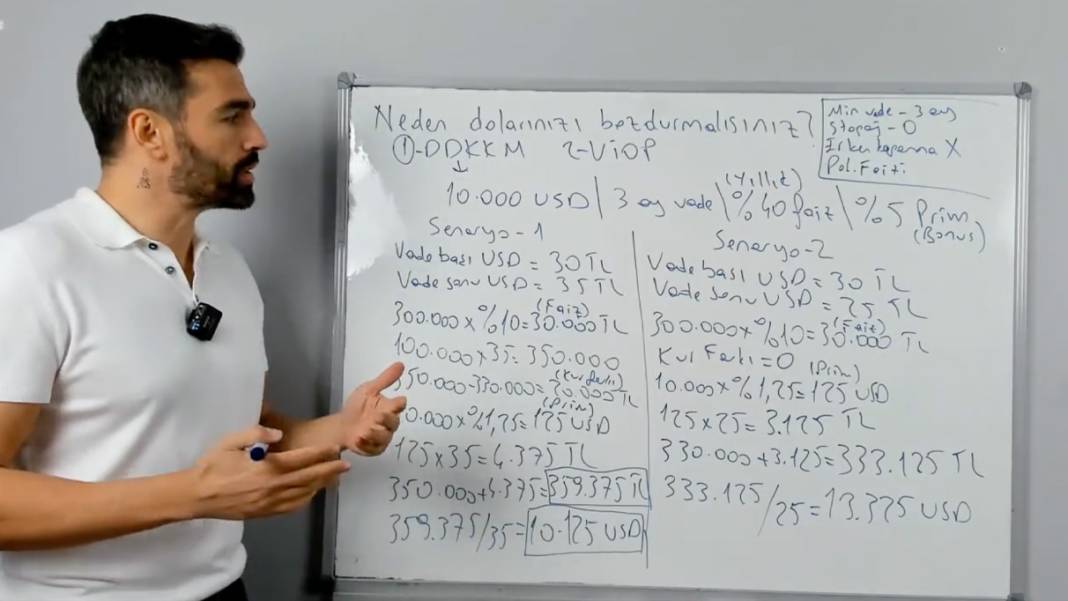 Neden dolarınızı bozdurmalısınız?
①-DDKKM 2-VİOP
Min vade - 3 ay
Stopaj - 0
X
Pol. Faizi
(Yıllık)
10.000 USD | 3 ay vade \ %40 faiz \ %5 Prim
(Bonus)
Senaryo-1
Vade başı USD = 30 TL
Vade sonu USD = 35 TL
(Faiz)
300.000 x %10 = 30.000 TL
100.000 x 35 = 350.000
(Kur farkı)
350.000-330.000 = 20.000 TL
(Prim)
0.000 x %1,25 = 125 USD
125 x 35 = 4.375 TL
350.000 + 4.375 = 359.375 TL
359.375/35 = 10.125 USD
Senaryo-2
Vade başı USD = 30 TL
Vade sonu USD = 25 TL
(Faiz)
300.000 x %10 = 30.000 TL
Kur Farkı = 0
(Prim)
10.000 x %1,25 = 125 USD
125 x 25 = 3.125 TL
330.000 + 3.125 = 333.125 TL
333.125/25 = 13.325 USD